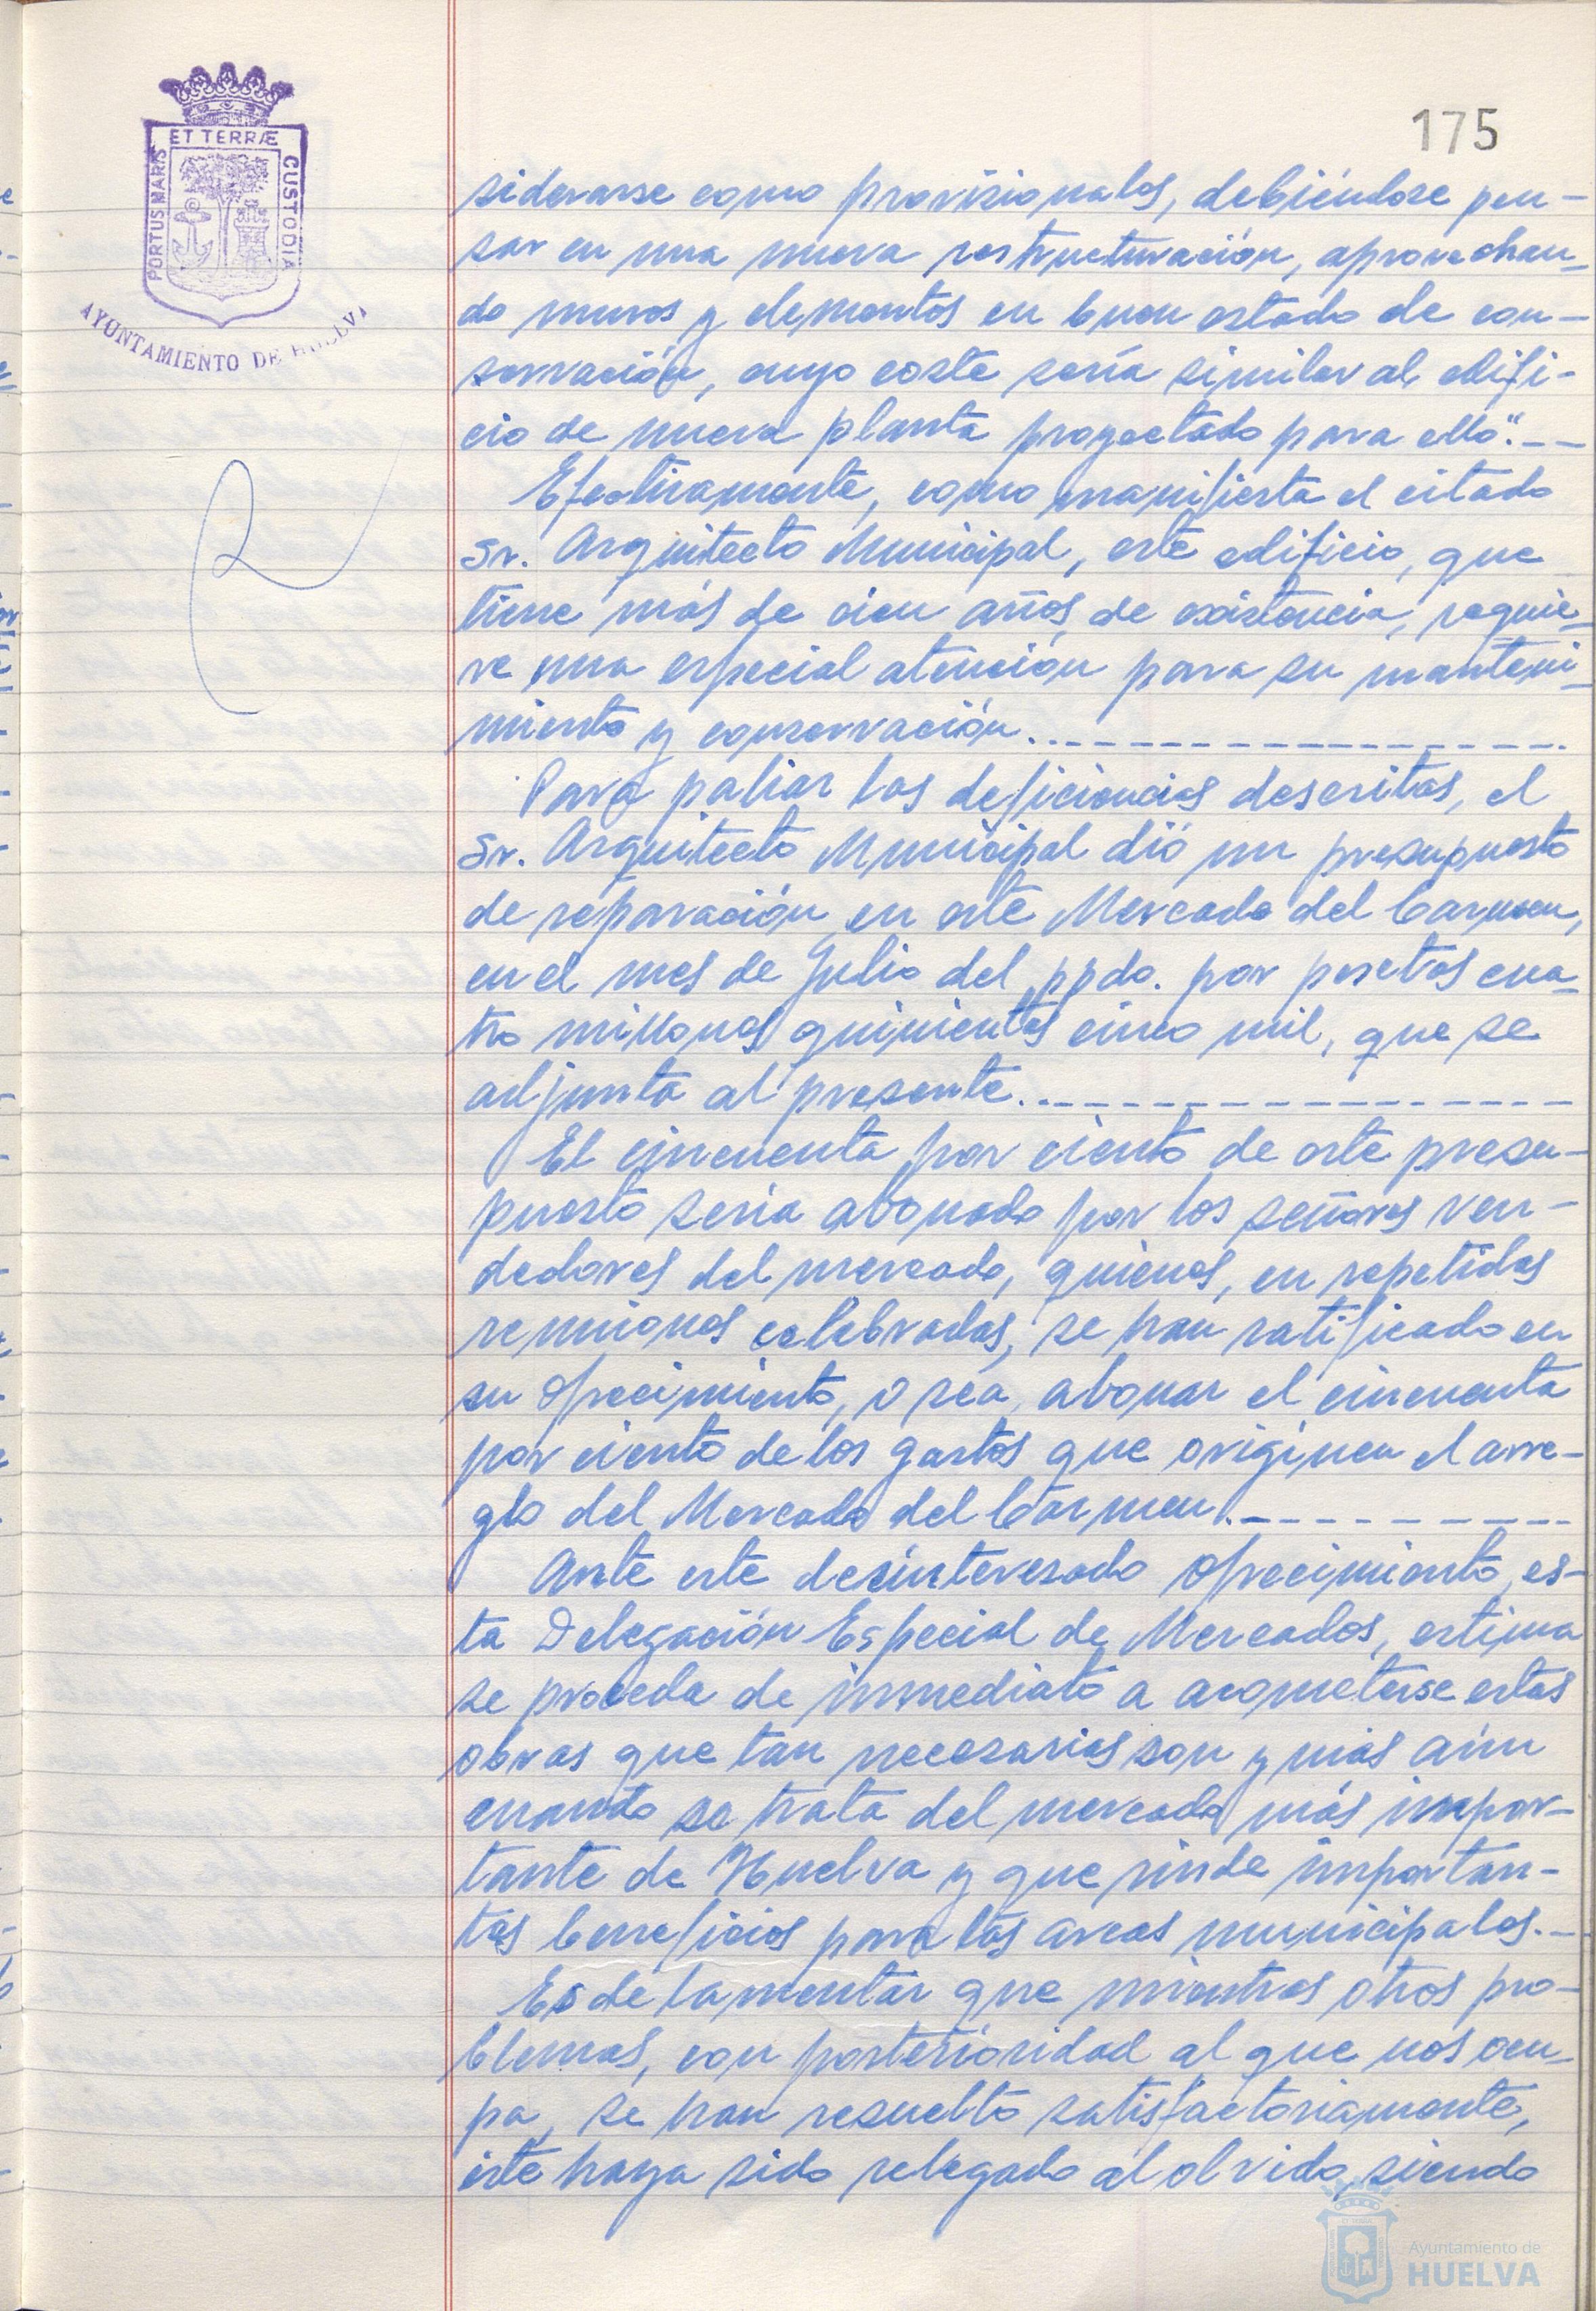 175
PORTUS MARIS
ET TERRÆ
CUSTODIA
AYUNTAMIENTO DE HUELVA
siderarse como provisionales, debiéndose pen-
sar en una nueva restructuración, aprovechan-
do muros y elementos en buen estado de con-
servación, cuyo coste sería similar al edifi-
cio de nueva planta proyectado para ello".--
Efectivamente, como manifiesta el citado
Sr. Arquitecto Municipal, este edificio, que
tiene más de cien años de existencia, requie-
re una especial atención para su manteni-
miento y conservación.------------------
Para paliar las deficiencias descritas, el
Sr. Arquitecto Municipal dió un presupuesto
de reparación en este Mercado del Carmen,
en el mes de Julio del ppdo. por pesetas cua-
tro millones quinientas cinco mil, que se
adjunta al presente.------------------
El cincuenta por ciento de este presu-
puesto sería abonado por los señores ven-
dedores del mercado, quienes, en repetidas
reuniones celebradas, se han ratificado en
su ofrecimiento, o sea, abonar el cincuenta
por ciento de los gastos que originen el arre-
glo del Mercado del Carmen.-----------
Ante este desinteresado ofrecimiento, es-
ta Delegación Especial de Mercados, estima
se proceda de inmediato a acometerse estas
obras que tan necesarias son y más aún
cuando se trata del mercado más impor-
tante de Huelva y que rinde importan-
tes beneficios para las arcas municipales.--
Es de lamentar que mientras otros pro-
blemas, con posterioridad al que nos ocu-
pa, se han resuelto satisfactoriamente,
éste haya sido relegado al olvido, siendo
Ayuntamiento de
HUELVA